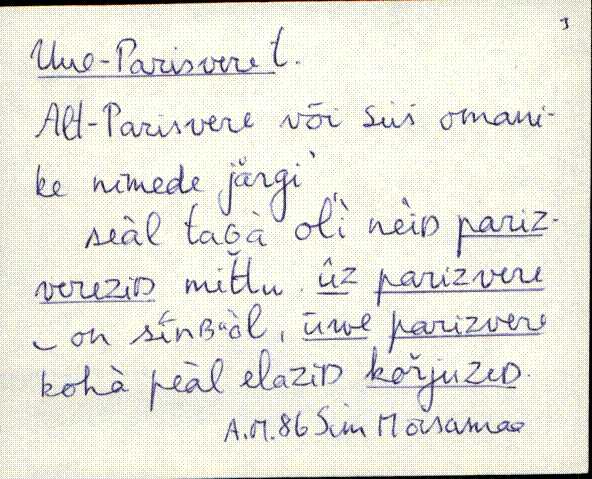 3
Uue-Parisvere t.
Alt-Parisvere või siis omani-
ke nimede järgi
seàl taGà olì nèiD pariz-
vereziD mit̆tu. ūz parizvere
on sínBuòl, ūwe parizvere
kohà peàl elaziD kořjuzeD.
A.M. 86 Sim Moisamaa